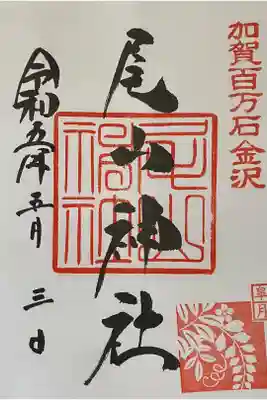 加賀百万石 金沢
尾山神社
尾山神社
令和五年五月三日
皐月